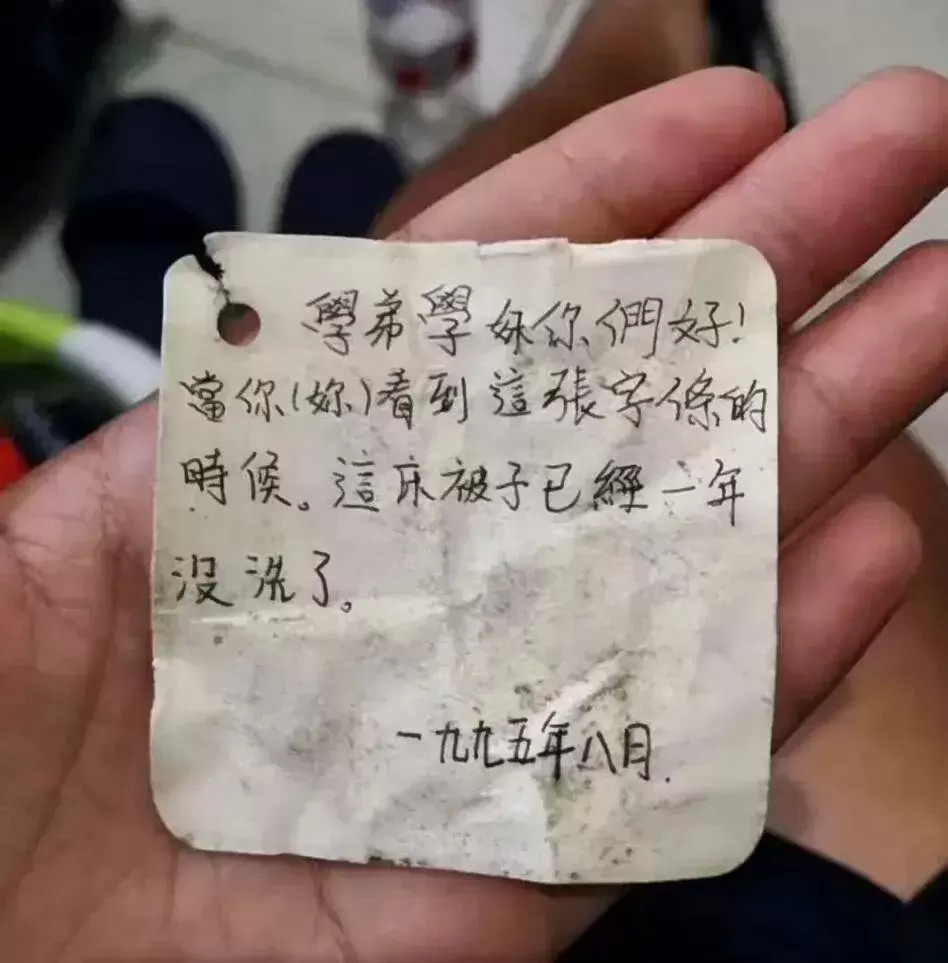 學弟學妹你們好!
當你(妳)看到這張字條的
時候。這床被子已經一年
沒洗了。
一九九五年八月.